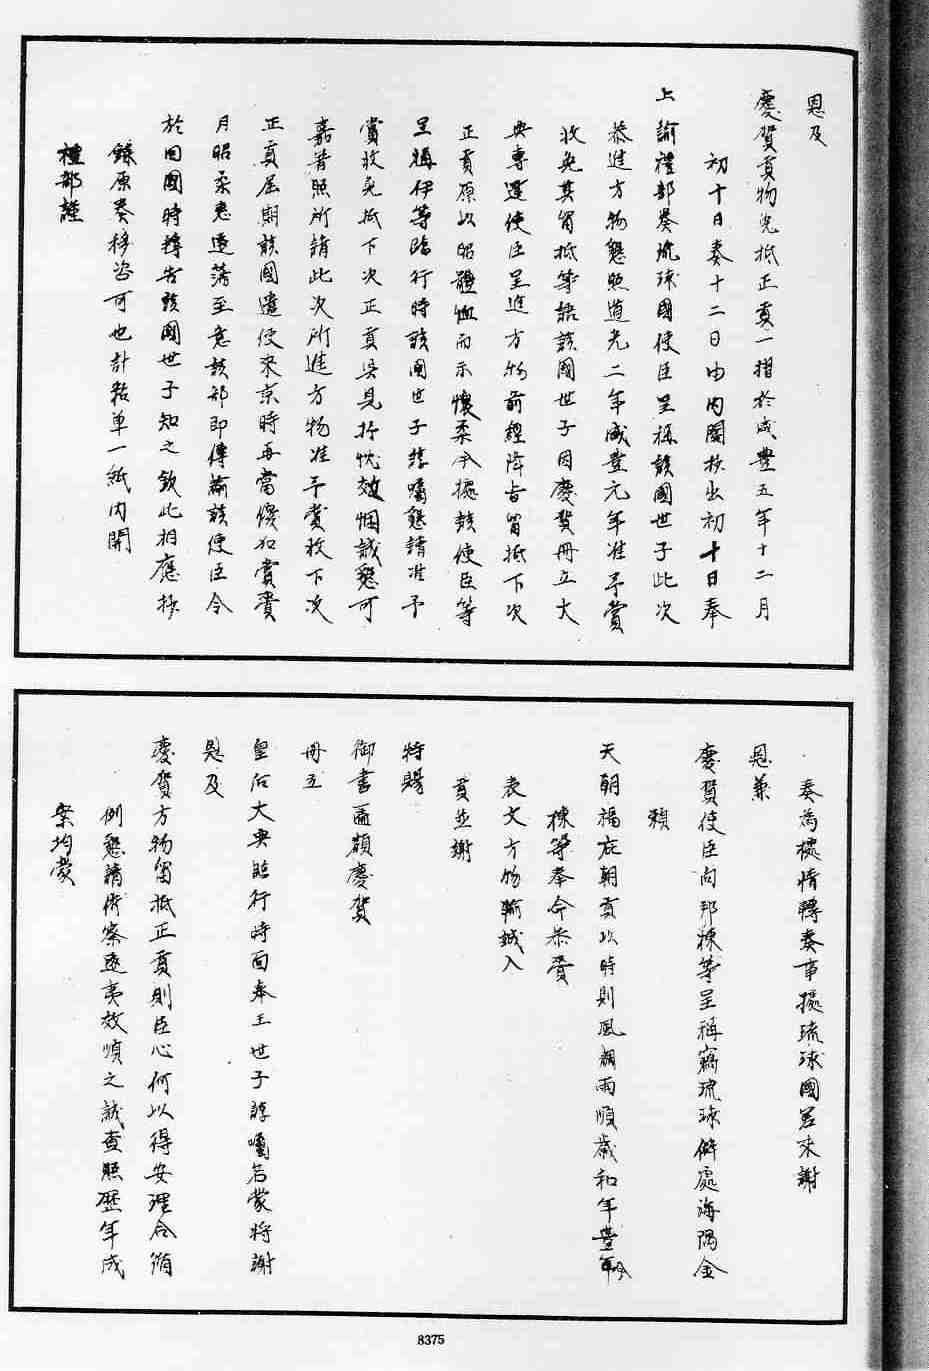 恩及
慶賀貢物免抵正貢一摺於咸豐五年十二月
初十日奏十二日由內閣抄出初十日奉
上諭禮部奏琉球國使臣呈稱該國世子此次
恭進方物懇照道光二年咸豐元年准予賞
收免其留抵等語該國世子因慶賀冊立大
典專遣使臣呈進方物前經降旨留抵下次
正貢原以昭體恤而示懷柔今據該使臣等
呈稱伊等臨行時該國世子諄囑懇請准予
賞收免抵下次正貢具見抒忱效悃誠懇可
嘉著照所請此次所進方物准予賞收下次
正貢屆期該國遣使來京時再當優加賞賚
用昭柔惠遠藩至意該部即傳諭該使臣令
於回國時轉告該國世子知之欽此相應抄
錄原奏移咨可也計粘單一紙內開
禮部謹
奏為據情轉奏事據琉球國差來謝
恩兼
慶賀使臣向邦棟等呈稱竊琉球僻處海隅全
賴
天朝福庇朝貢以時則風調雨順歲和年豐今
棟等奉命恭賫
表文方物輸誠入
貢並謝
特賜
御書匾額慶賀
冊立
皇后大典臨行時面奉王世子諄囑若蒙將謝
恩及
慶賀方物留抵正貢則臣心何以得安理合循
例懇請俯察遠夷效順之誠查照歷年成
案均蒙
8375